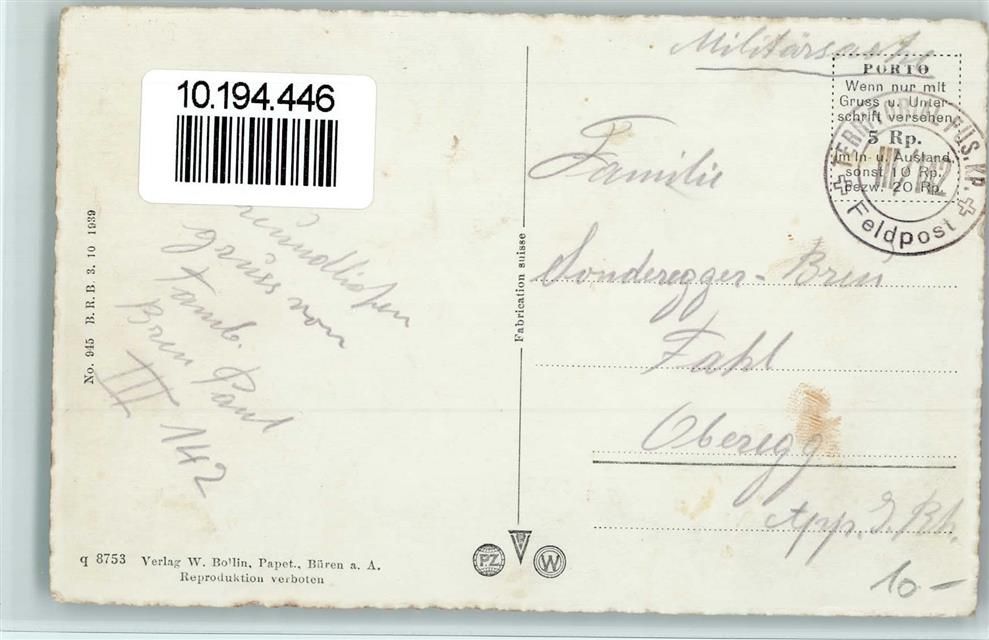 10.194.446
Militärsache
PORTO
Wenn nur mit
Gruss u. Unter-
schrift versehen
5 Rp.
im In- u. Ausland
sonst 10 Rp.
bezw. 20 Rp.
TERRITORIAL FÜS. KP.
III/142
Feldpost
Familie
Sonderegger-Breu
Fahl
Oberegg
App. I. Rh.
10 –
gruss von
Tamb.
Breu Paul
III 142
No. 945 B. R. B. 3. 10 1939
Fabrication suisse
q 8753 Verlag W. Bollin, Papet., Büren a. A.
Reproduktion verboten
PZ
W